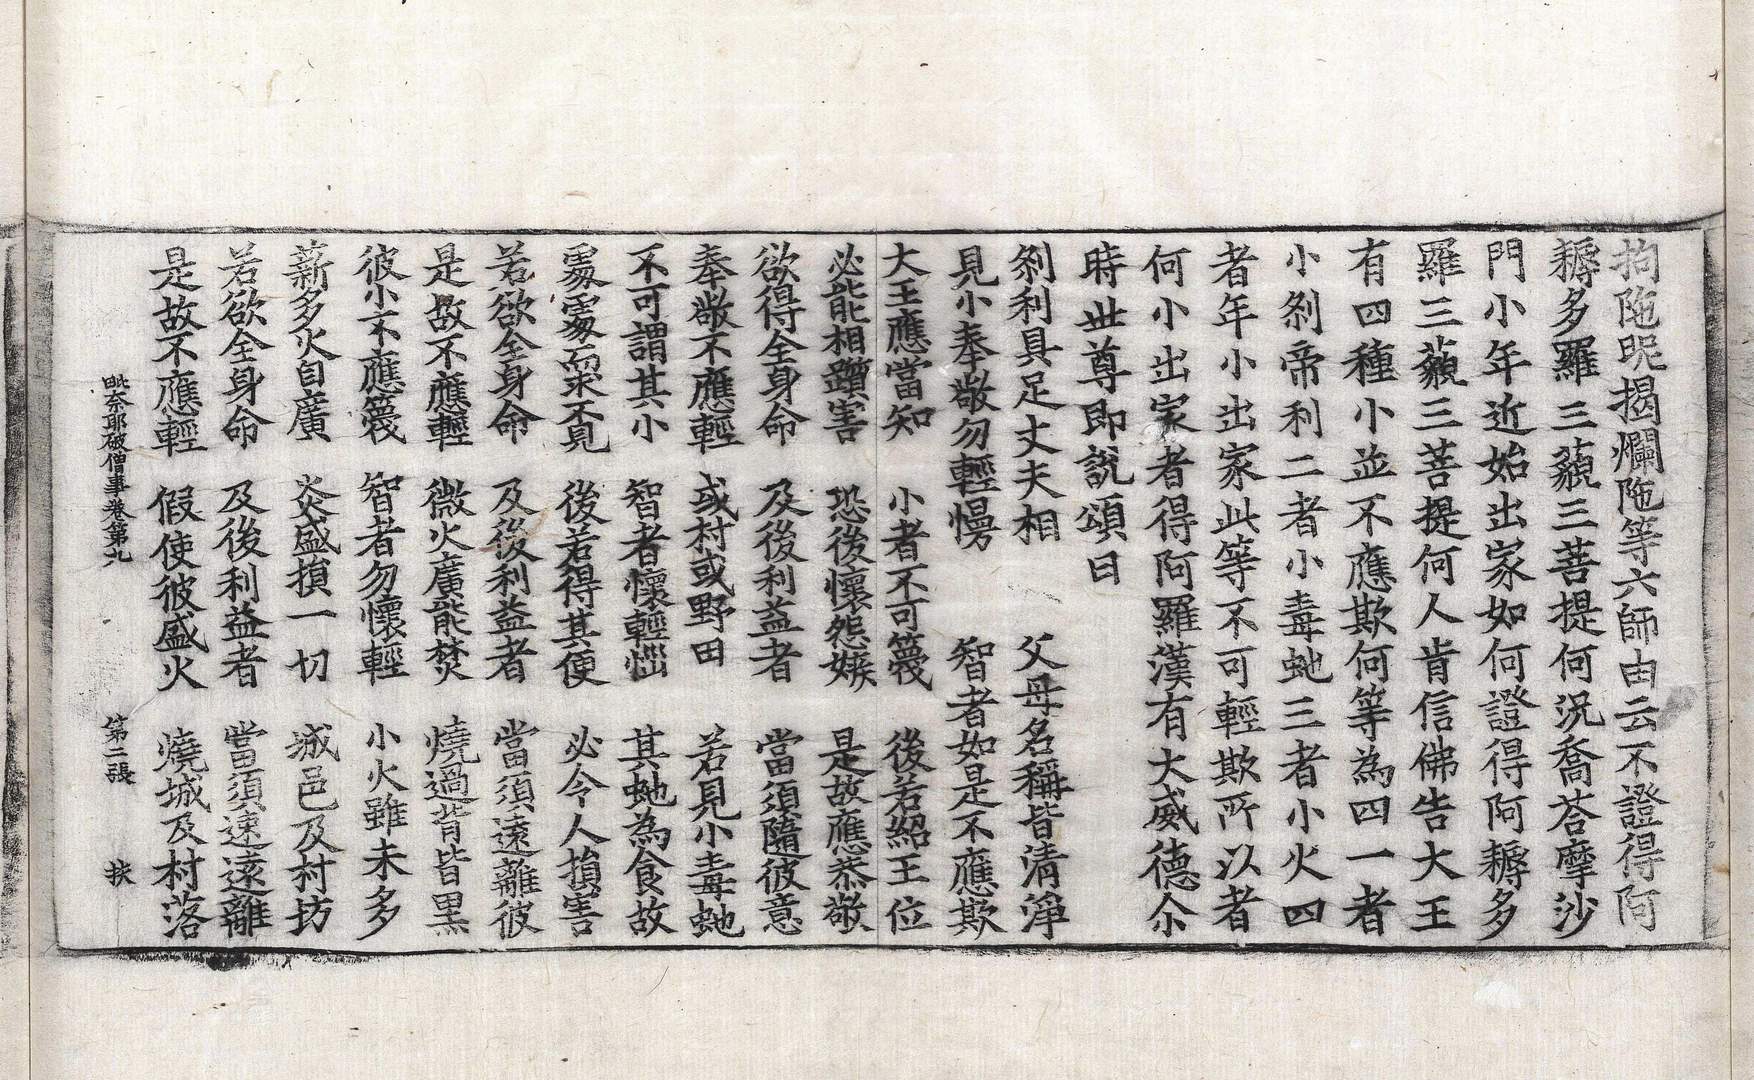 拘陁昵揭爛陁等六師由云不證得阿
耨多羅三藐三菩提何況喬荅摩沙
門小年近始出家如何證得阿耨多
羅三藐三菩提何人肯信佛告大王
有四種小並不應欺何等為四一者
小刹帝利二者小毒虵三者小火四
者年小出家此等不可輕欺所以者
何小出家者得阿羅漢有大威德尒
時世尊即說頌曰
刹利具足丈夫相 父母名稱皆清淨
見小奉敬勿輕慢 智者如是不應欺
大王應當知 小者不可蔑 後若紹王位
必能相躓害 恐後懷怨嫉 是故應恭敬
欲得全身命 及後利益者 當須隨彼意
奉敬不應輕 或村或野田 若見小毒虵
不可謂其小 智者懷輕 其虵為食故
處處而求覓 後若得其便 必令人損害
若欲全身命 及後利益者 當須遠離彼
是故不應輕 微火廣能焚 燒過背皆黑
彼小不應蔑 智者勿懷輕 小火雖未多
薪多火自廣 炎盛損一切 城邑及村坊
若欲全身命 及後利益者 當須速遠離
是故不應輕 假使彼盛火 燒城及村落
毗奈耶破僧事卷第九 第二張